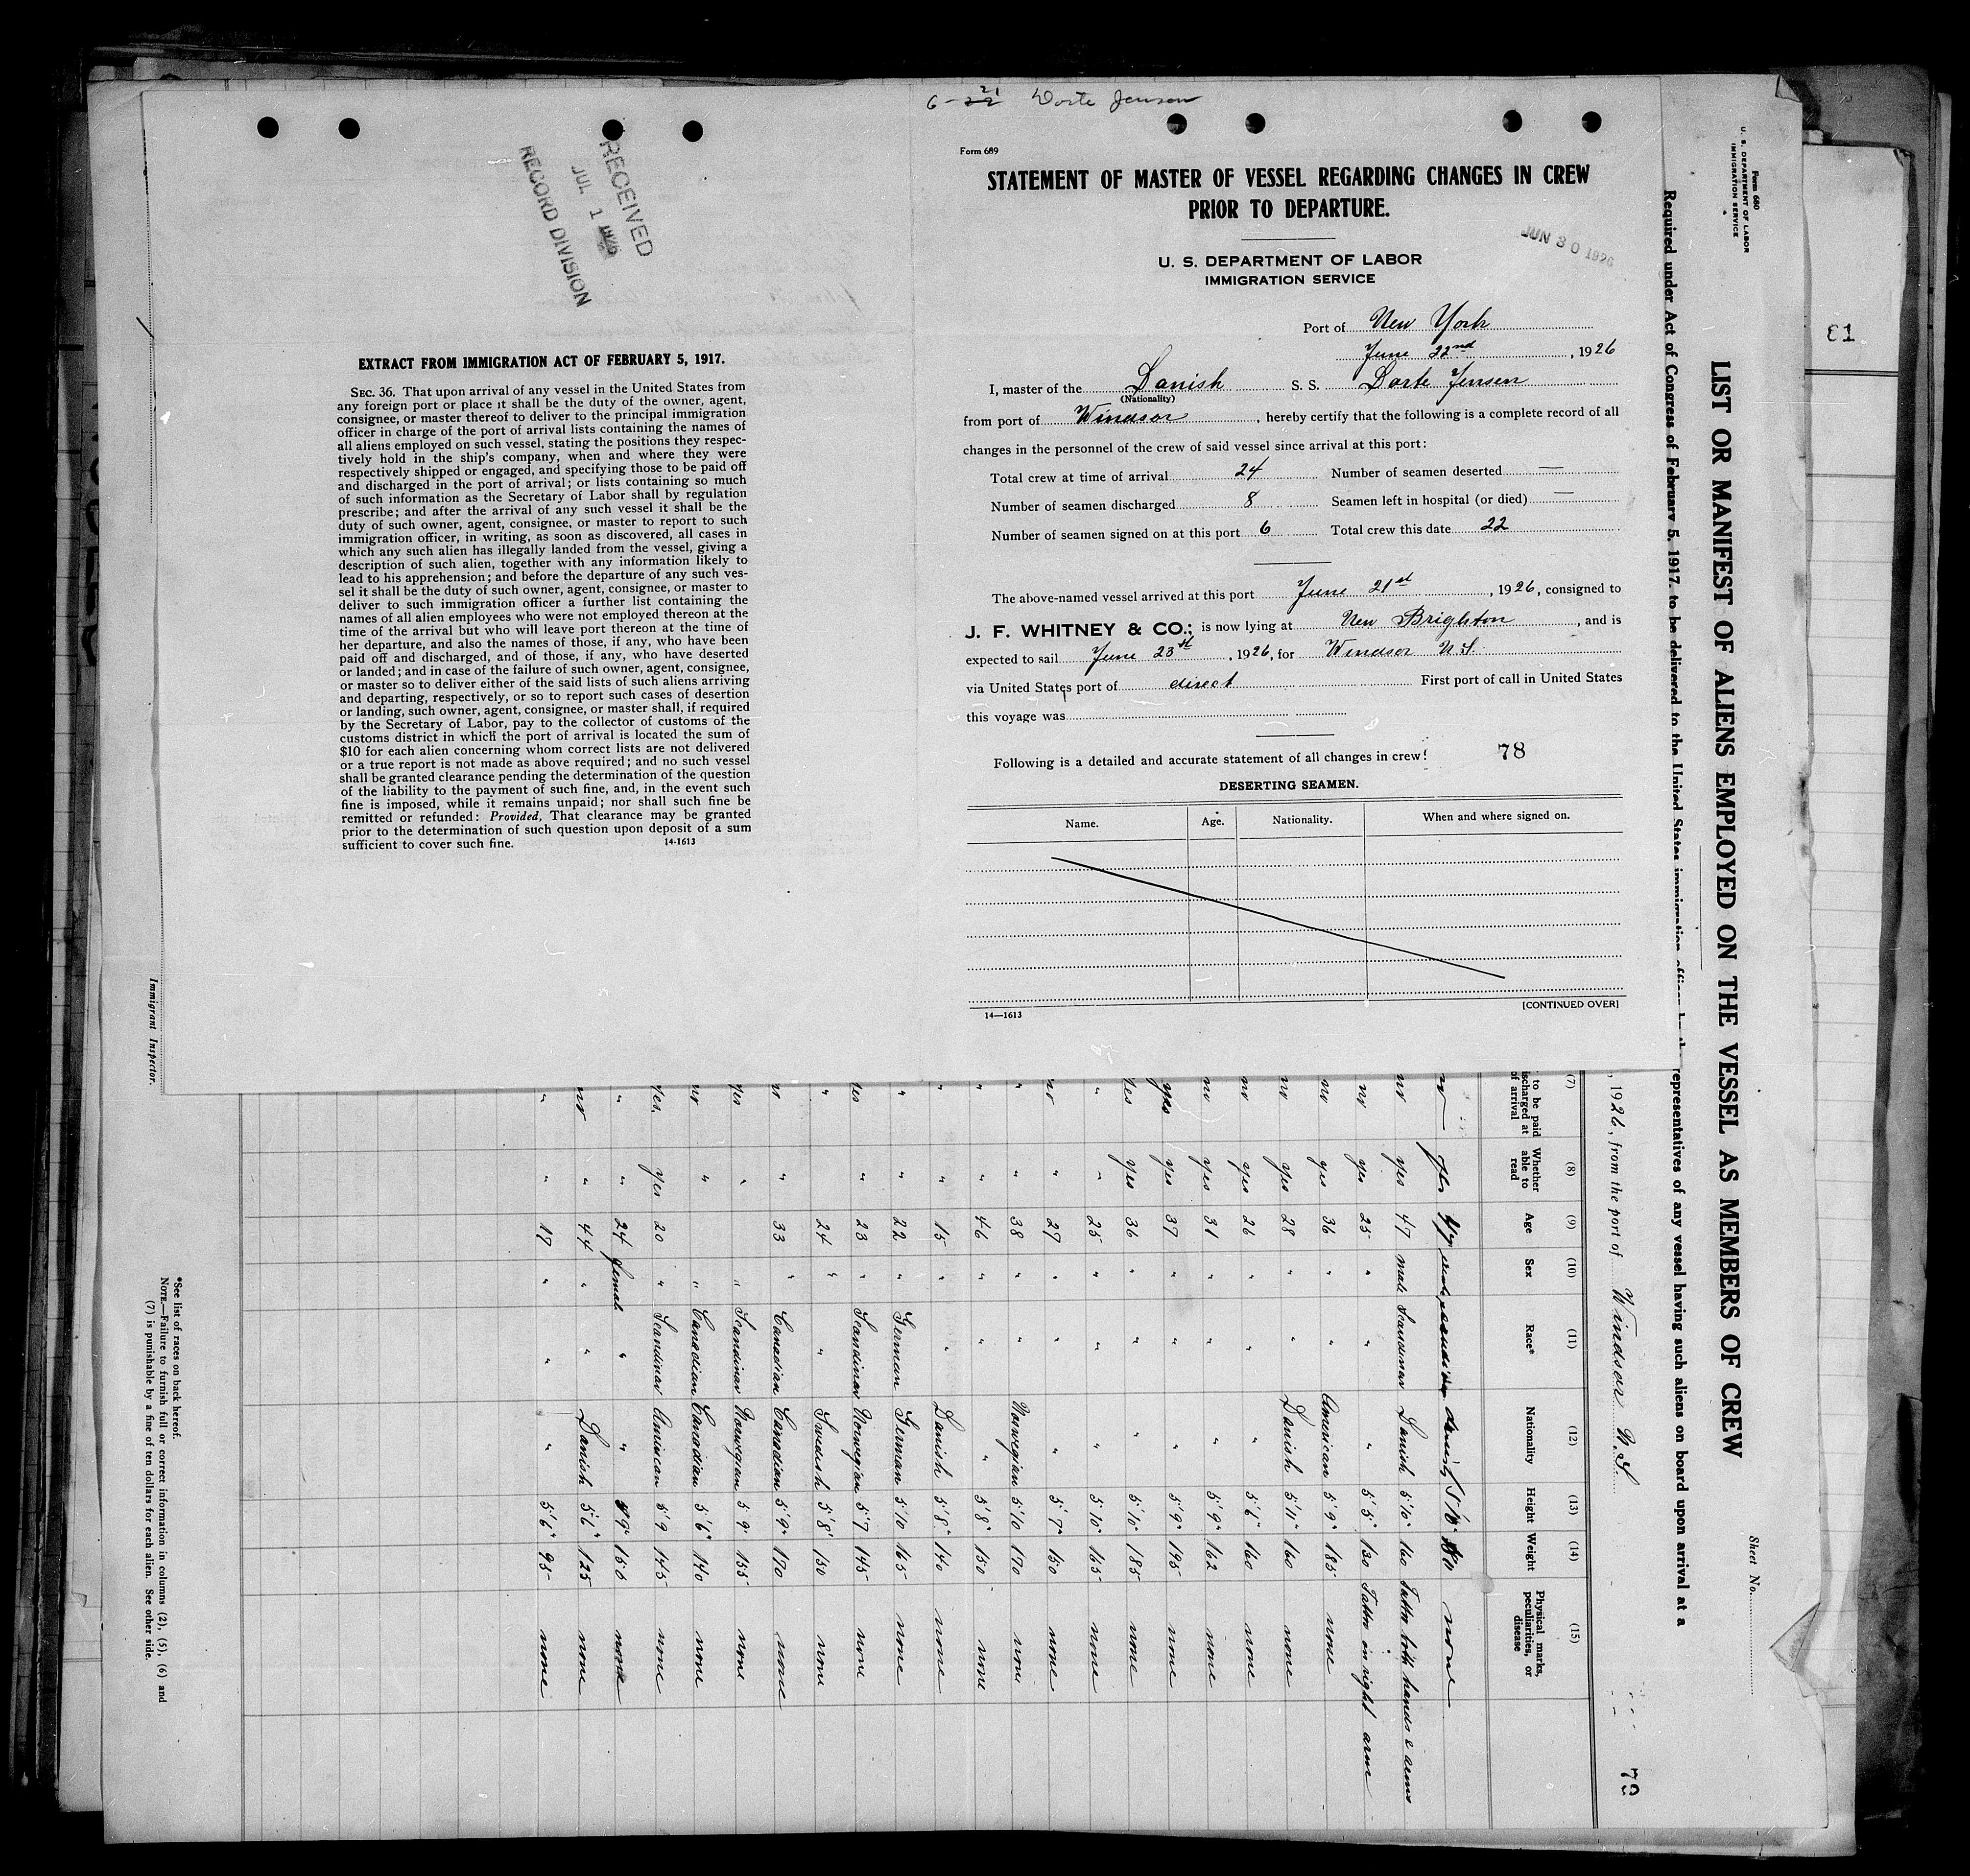 6-22 21 Dorte Jensen
RECEIVED
JUL 1 1926
RECORD DIVISION
EXTRACT FROM IMMIGRATION ACT OF FEBRUARY 5, 1917.
SEC. 36. That upon arrival of any vessel in the United States from
any foreign port or place it shall be the duty of the owner, agent,
consignee, or master thereof to deliver to the principal immigration
officer in charge of the port of arrival lists containing the names of
all aliens employed on such vessel, stating the positions they respec-
tively hold in the ship's company, when and where they were
respectively shipped or engaged, and specifying those to be paid off
and discharged in the port of arrival; or lists containing so much
of such information as the Secretary of Labor shall by regulation
prescribe; and after the arrival of any such vessel it shall be the
duty of such owner, agent, consignee, or master to report to such
immigration officer, in writing, as soon as discovered, all cases in
which any such alien has illegally landed from the vessel, giving a
description of such alien, together with any information likely to
lead to his apprehension; and before the departure of any such ves-
sel it shall be the duty of such owner, agent, consignee, or master to
deliver to such immigration officer a further list containing the
names of all alien employees who were not employed thereon at the
time of the arrival but who will leave port thereon at the time of
her departure, and also the names of those, if any, who have been
paid off and discharged, and of those, if any, who have deserted
or landed; and in case of the failure of such owner, agent, consignee,
or master so to deliver either of the said lists of such aliens arriving
and departing, respectively, or so to report such cases of desertion
or landing, such owner, agent, consignee, or master shall, if required
by the Secretary of Labor, pay to the collector of customs of the
customs district in which the port of arrival is located the sum of
$10 for each alien concerning whom correct lists are not delivered
or a true report is not made as above required; and no such vessel
shall be granted clearance pending the determination of the question
of the liability to the payment of such fine, and, in the event such
fine is imposed, while it remains unpaid; nor shall such fine be
remitted or refunded: Provided, That clearance may be granted
prior to the determination of such question upon deposit of a sum
sufficient to cover such fine.
14-1613
Form 689
STATEMENT OF MASTER OF VESSEL REGARDING CHANGES IN CREW
PRIOR TO DEPARTURE.
JUN 30 1926
U. S. DEPARTMENT OF LABOR
IMMIGRATION SERVICE
Port of New York
June 22nd, 1926
I, master of the Danish S. S. Dorte Jensen
(Nationality)
from port of Windsor, hereby certify that the following is a complete record of all
changes in the personnel of the crew of said vessel since arrival at this port:
Total crew at time of arrival 24 Number of seamen deserted —
Number of seamen discharged 8 Seamen left in hospital (or died) —
Number of seamen signed on at this port 6 Total crew this date 22
The above-named vessel arrived at this port June 21st, 1926, consigned to
J. F. WHITNEY & CO.; is now lying at New Brighton, and is
expected to sail June 23th, 1926, for Windsor N.S.
via United States port of direct First port of call in United States
this voyage was
Following is a detailed and accurate statement of all changes in crew:
78
DESERTING SEAMEN.
Name. Age. Nationality. When and where signed on.
14—1613
[CONTINUED OVER]
Form 680
U. S. DEPARTMENT OF LABOR
IMMIGRATION SERVICE
Sheet No.
LIST OR MANIFEST OF ALIENS EMPLOYED ON THE VESSEL AS MEMBERS OF CREW
Required under Act of Congress of February 5, 1917, to be delivered to the United States immigration officer by the representatives of any vessel having such aliens on board upon arrival at a
, 1926, from the port of Windsor N.S.
79
(7) (8) (9) (10) (11) (12) (13) (14) (15)
to be paid
discharged at
of arrival
Whether able to read
Age
Sex
Race*
Nationality
Height
Weight
Physical marks, peculiarities, or disease
no yes 47 male Scandinav Danish 5'10" 160 Tattoo both hands & arms
no yes 25 " " " 5'5" 130 Tattoo in right arm
no yes 36 " " American 5'9" 185 none
no yes 28 " " Danish 5'11" 160 none
no yes 26 " " " 5'6" 160 none
no yes 31 " " " 5'9" 162 none
yes yes 37 " " " 5'9" 195 none
yes yes 36 " " " 5'10" 185 none
" " 25 " " " 5'10" 165 none
no " 27 " " " 5'7" 150 none
" " 38 " " Norwegian 5'10 170 none
" 46 " " " 5'8" 150 none
" " 15 " " Danish 5'8" 140 none
" " 22 " German German 5'10 165 none
yes " 23 " Scandinav Norwegian 5'7 145 none
" 24 " " Swedish 5'8" 150 none
no " 33 " Canadian Canadian 5'9" 170 none
yes " " Scandinav Norwegian 5'9" 155 none
no " " Canadian Canadian 5'6" 140 none
yes. yes 20 " Scandinav American 5'9 145 none
" " 24 female " " 150 none
no " 44 " " Danish 5'6" 125 none
" " 17 " " " 5'6" 95 none
Immigrant Inspector.
*See list of races on back hereof.
NOTE.—Failure to furnish full or correct information in columns (2), (5), (6) and
(7) is punishable by a fine of ten dollars for each alien. See other side.